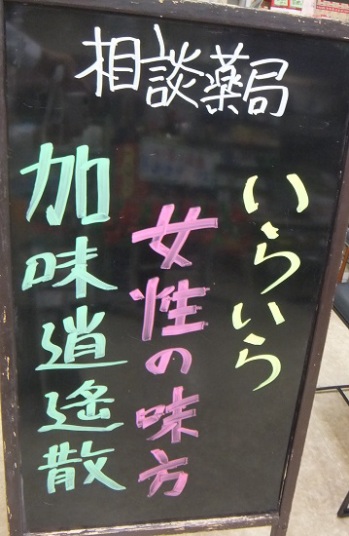 相談薬局
いらいら
女性の味方
加味逍遙散